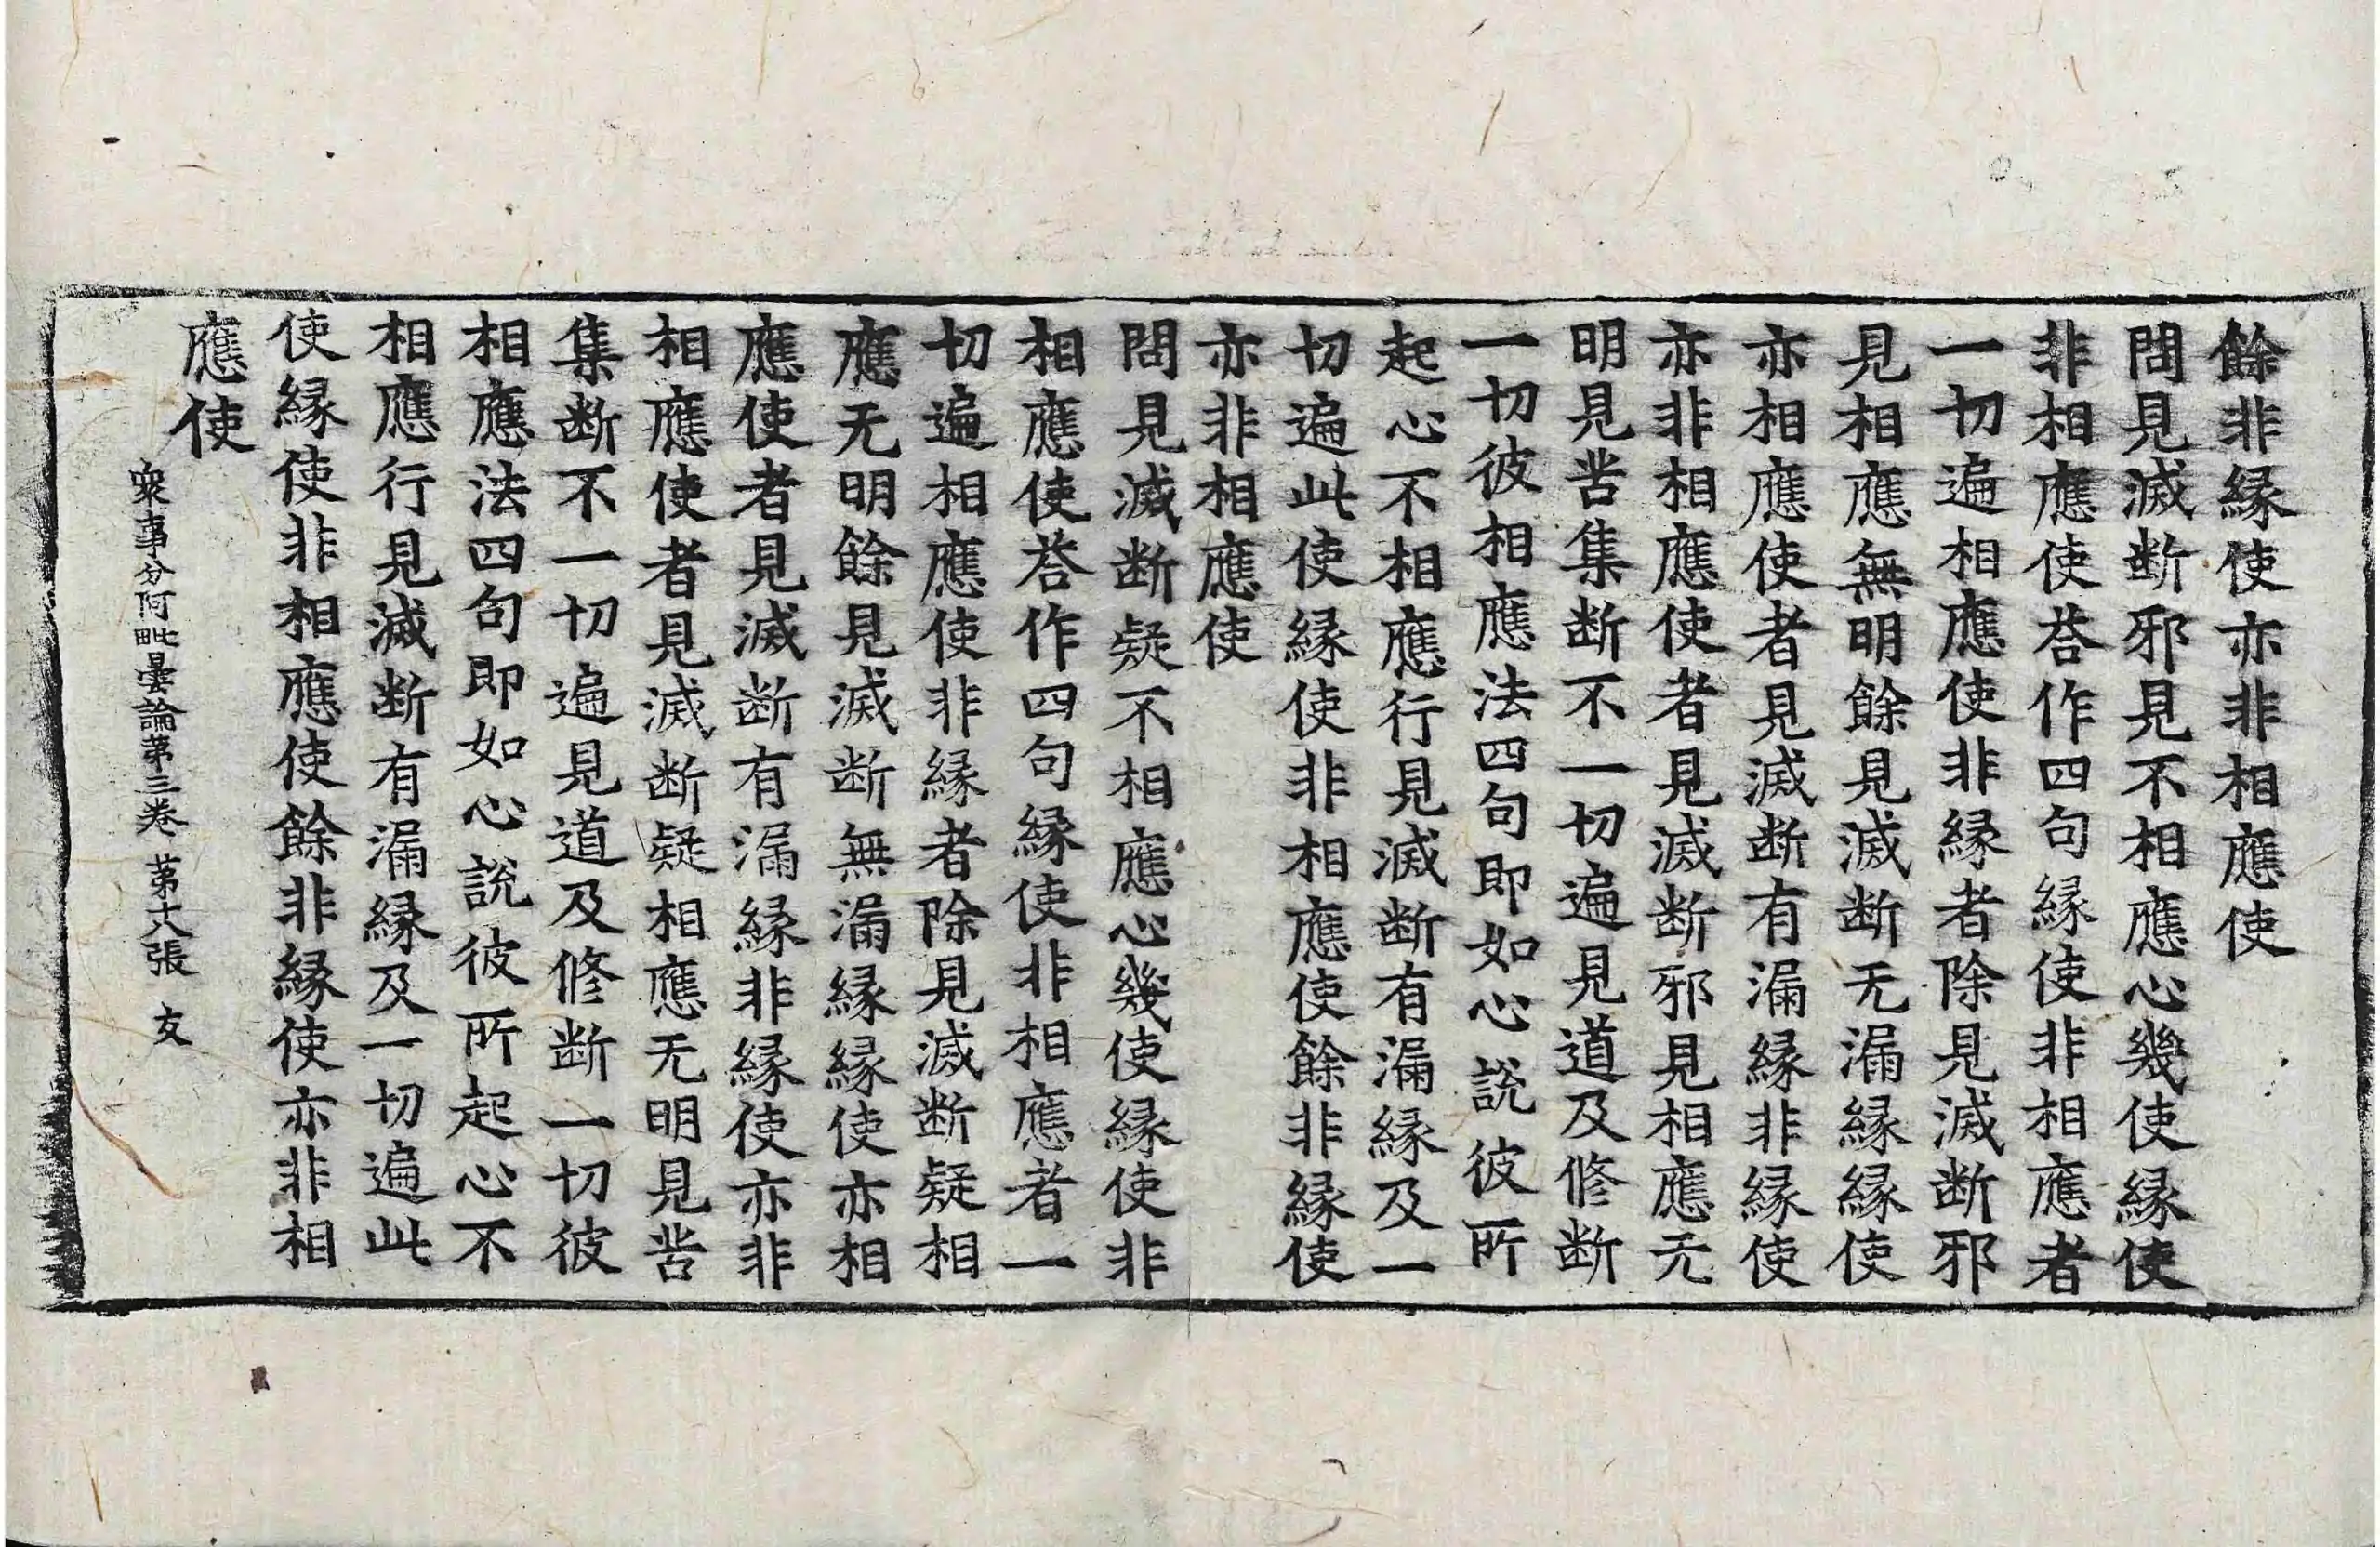 餘非縁使亦非相應使
問見滅断邪見不相應心幾使縁使
非相應使荅作四句縁使非相應者
一切遍相應使非縁者除見滅断邪
見相應無明餘見滅断无漏縁縁使
亦相應使者見滅断有漏縁非縁使
亦非相應使者見滅断邪見相應无
明見苦集断不一切遍見道及修断
一切彼相應法四句即如心說彼所
起心不相應行見滅断有漏縁及一
切遍此使縁使非相應使餘非縁使
亦非相應使
問見滅断疑不相應心幾使縁使非
相應使荅作四句縁使非相應者一
切遍相應使非縁者除見滅断疑相
應无明餘見滅断無漏縁縁使亦相
應使者見滅断有漏縁非縁使亦非
相應使者見滅断疑相應无明見苦
集断不一切遍見道及修断一切彼
相應法四句即如心說彼所起心不
相應行見滅断有漏縁及一切遍此
使縁使非相應使餘非縁使亦非相
應使
衆事分阿毗曇論第三卷 第十六張 友